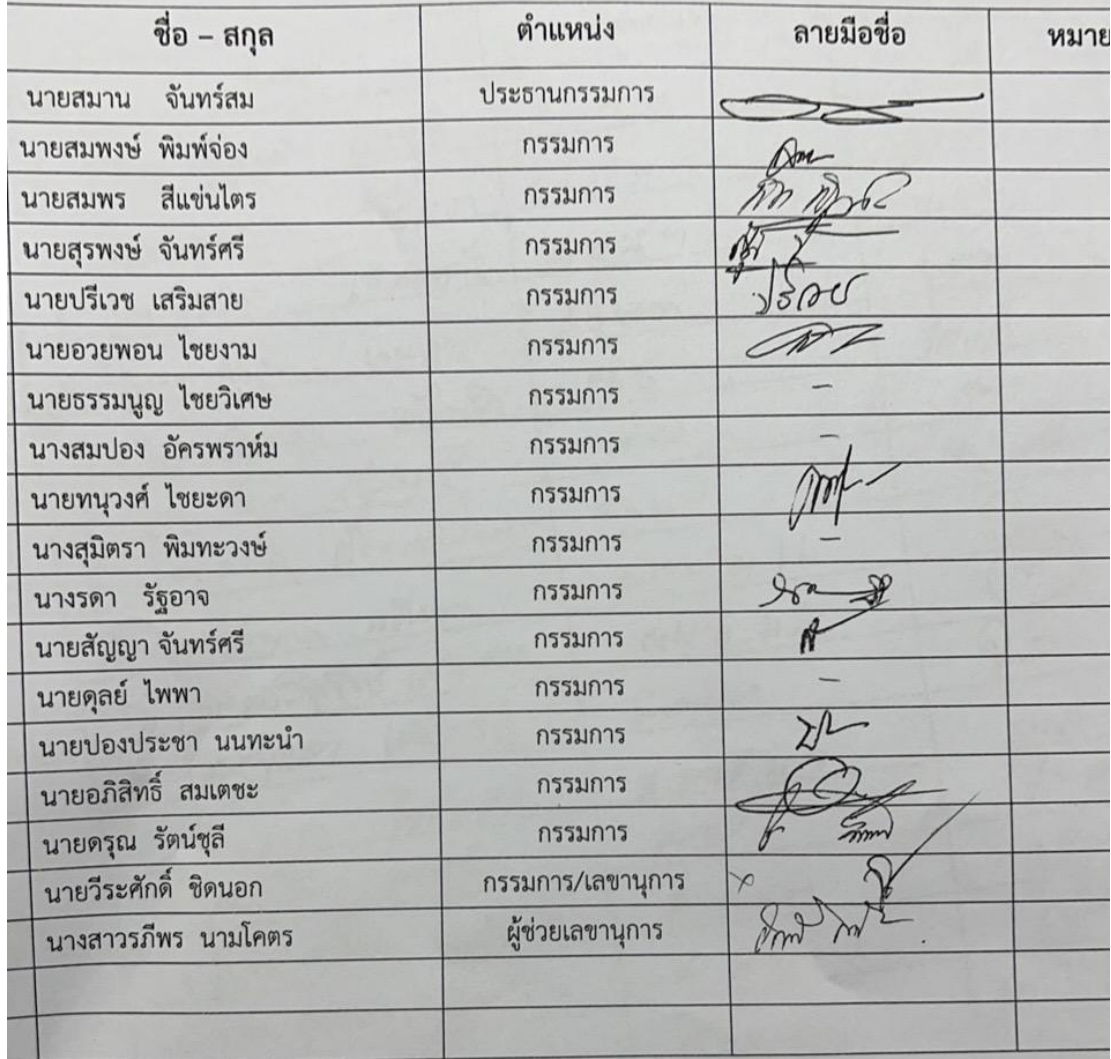 ชื่อ – สกุล ตำแหน่ง ลายมือชื่อ หมาย
นายสมาน จันทร์สม ประธานกรรมการ
นายสมพงษ์ พิมพ์จ่อง กรรมการ
นายสมพร สีแข่นไตร กรรมการ
นายสุรพงษ์ จันทร์ศรี กรรมการ
นายปรีเวช เสริมสาย กรรมการ
นายอวยพอน ไชยงาม กรรมการ
นายธรรมนูญ ไชยวิเศษ กรรมการ –
นางสมปอง อัครพราห์ม กรรมการ –
นายทนุวงศ์ ไชยะดา กรรมการ
นางสุมิตรา พิมทะวงษ์ กรรมการ –
นางรดา รัฐอาจ กรรมการ
นายสัญญา จันทร์ศรี กรรมการ
นายดุลย์ ไพพา กรรมการ –
นายปองประชา นนทะนำ กรรมการ
นายอภิสิทธิ์ สมเตชะ กรรมการ
นายดรุณ รัตน์ชุลี กรรมการ
นายวีระศักดิ์ ชิดนอก กรรมการ/เลขานุการ ×
นางสาวรภีพร นามโคตร ผู้ช่วยเลขานุการ